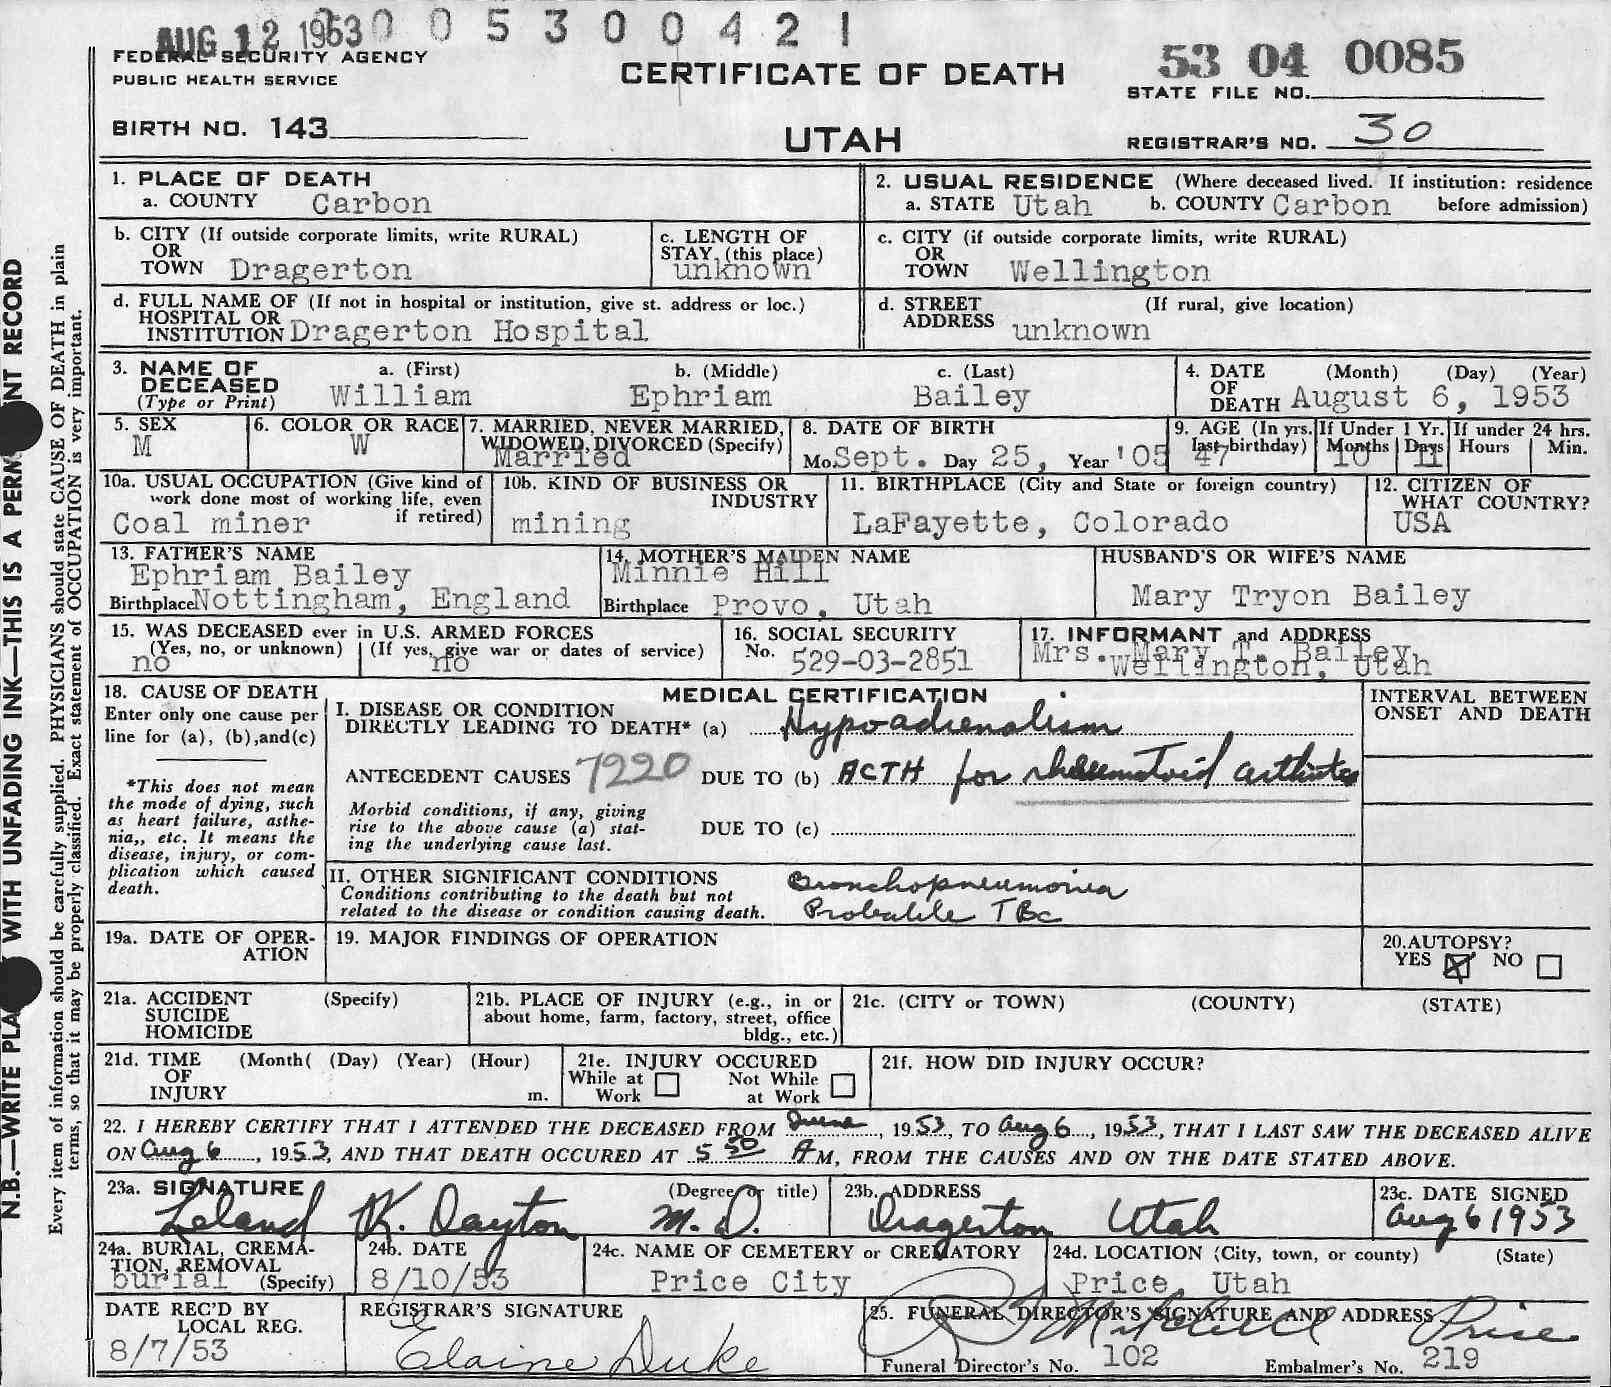 AUG 12 1953 0 0 5 3 0 0 4 2 1
FEDERAL SECURITY AGENCY
PUBLIC HEALTH SERVICE
CERTIFICATE OF DEATH
53 04 0085
STATE FILE NO.
BIRTH NO. 143
UTAH
REGISTRAR'S NO. 30
1. PLACE OF DEATH
a. COUNTY Carbon
2. USUAL RESIDENCE (Where deceased lived. If institution: residence
a. STATE Utah b. COUNTY Carbon before admission)
b. CITY (If outside corporate limits, write RURAL)
OR
TOWN Dragerton
c. LENGTH OF
STAY (this place)
unknown
c. CITY (if outside corporate limits, write RURAL)
OR
TOWN Wellington
d. FULL NAME OF (If not in hospital or institution, give st. address or loc.)
HOSPITAL OR
INSTITUTION Dragerton Hospital
d. STREET (If rural, give location)
ADDRESS unknown
3. NAME OF a. (First) b. (Middle) c. (Last)
DECEASED William Ephriam Bailey
(Type or Print)
4. DATE (Month) (Day) (Year)
OF
DEATH August 6, 1953
5. SEX
M
6. COLOR OR RACE
W
7. MARRIED, NEVER MARRIED,
WIDOWED, DIVORCED (Specify)
Married
8. DATE OF BIRTH
Mo. Sept. Day 25, Year '05
9. AGE (In yrs.
last birthday)
47
If Under 1 Yr.
Months Days
10 11
If under 24 hrs.
Hours Min.
10a. USUAL OCCUPATION (Give kind of
work done most of working life, even
if retired)
Coal miner
10b. KIND OF BUSINESS OR
INDUSTRY
mining
11. BIRTHPLACE (City and State or foreign country)
LaFayette, Colorado
12. CITIZEN OF
WHAT COUNTRY?
USA
13. FATHER'S NAME
Ephriam Bailey
Birthplace Nottingham, England
14. MOTHER'S MAIDEN NAME
Minnie Hill
Birthplace Provo, Utah
HUSBAND'S OR WIFE'S NAME
Mary Tryon Bailey
15. WAS DECEASED ever in U.S. ARMED FORCES
(Yes, no, or unknown) (If yes, give war or dates of service)
no no
16. SOCIAL SECURITY
No. 529-03-2851
17. INFORMANT and ADDRESS
Mrs. Mary T. Bailey
Wellington, Utah
18. CAUSE OF DEATH
Enter only one cause per
line for (a), (b),and(c)
*This does not mean
the mode of dying, such
as heart failure, asthe-
nia,, etc. It means the
disease, injury, or com-
plication which caused
death.
MEDICAL CERTIFICATION
I. DISEASE OR CONDITION
DIRECTLY LEADING TO DEATH* (a) Hypoadrenalism
ANTECEDENT CAUSES 7220 DUE TO (b) ACTH for rheumatoid arthritis
Morbid conditions, if any, giving
rise to the above cause (a) stat-
ing the underlying cause last.
DUE TO (c)
II. OTHER SIGNIFICANT CONDITIONS
Conditions contributing to the death but not
related to the disease or condition causing death.
Bronchopneumonia
Probable TBc
INTERVAL BETWEEN
ONSET AND DEATH
19a. DATE OF OPER-
ATION
19. MAJOR FINDINGS OF OPERATION
20. AUTOPSY?
YES NO
21a. ACCIDENT (Specify)
SUICIDE
HOMICIDE
21b. PLACE OF INJURY (e.g., in or
about home, farm, factory, street, office
bldg., etc.)
21c. (CITY or TOWN) (COUNTY) (STATE)
21d. TIME (Month( (Day) (Year) (Hour)
OF
INJURY m.
21e. INJURY OCCURED
While at Work Not While at Work
21f. HOW DID INJURY OCCUR?
22. I HEREBY CERTIFY THAT I ATTENDED THE DECEASED FROM June, 1953, TO Aug 6, 1953, THAT I LAST SAW THE DECEASED ALIVE
ON Aug 6, 1953, AND THAT DEATH OCCURED AT 5 50 AM, FROM THE CAUSES AND ON THE DATE STATED ABOVE.
23a. SIGNATURE (Degree or title)
Leland K. Dayton M.D.
23b. ADDRESS
Dragerton Utah
23c. DATE SIGNED
Aug 6 1953
24a. BURIAL, CREMA-
TION, REMOVAL
burial (Specify)
24b. DATE
8/10/53
24c. NAME OF CEMETERY or CREMATORY
Price City
24d. LOCATION (City, town, or county) (State)
Price, Utah
DATE REC'D BY
LOCAL REG.
8/7/53
REGISTRAR'S SIGNATURE
Elaine Duke
25. FUNERAL DIRECTOR'S SIGNATURE AND ADDRESS
Mitchell Price
Funeral Director's No. 102 Embalmer's No. 219
N.B.—WRITE PLA WITH UNFADING INK—THIS IS A PERM NT RECORD
Every item of information should be carefully supplied. PHYSICIANS should state CAUSE OF DEATH in plain
terms, so that it may be properly classified. Exact statement of OCCUPATION is very important.